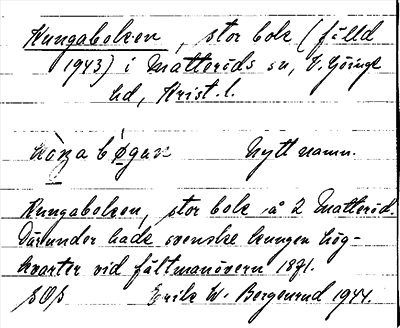 Kungaboken, stor bok (fälld
1943) i Matteröds sn, V. Göinge
hd, Krist. l.
Nytt namn.
Kungaboken, stor bok å 2 Matteröd.
Därunder hade svenske kungen hög-
kvarter vid fältmanövern 1871.
Erik W. Bergenrud 1944.